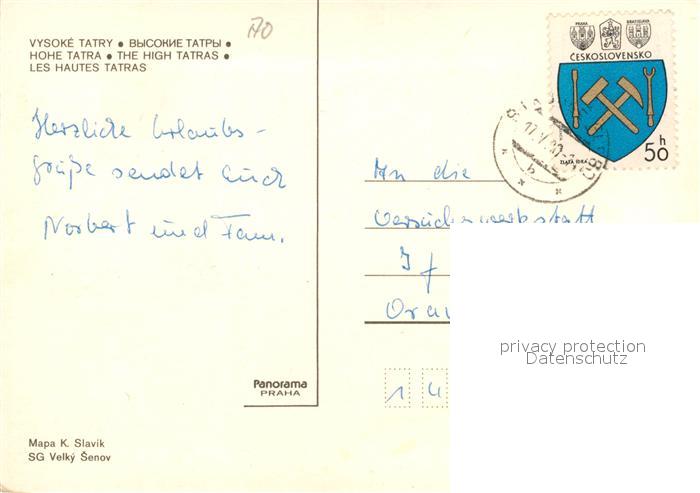 AO
VYSOKÉ TATRY • ВЫСОКИЕ ТАТРЫ •
HOHE TATRA • THE HIGH TATRAS •
LES HAUTES TATRAS
Herzliche Urlaubs-
grüße sendet Euch
Norbert und Fam.
Panorama
PRAHA
Mapa K. Slavík
SG Velký Šenov
PRAHA BRATISLAVA
ČESKOSLOVENSKO
50 h
ZLATÁ IDKA
An die
Versuchswerkstatt
If
Oran
14
privacy protection
Datenschutz